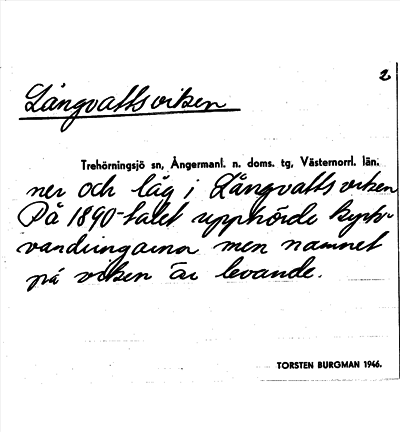 2
Långvattsviken
Trehörningsjö sn, Ångermanl. n. doms. tg, Västernorrl. län.
ner och låg i Långvattsviken
På 1890-talet upphörde kyrk-
vandringarna men namnet
på viken är levande.
TORSTEN BURGMAN 1946.